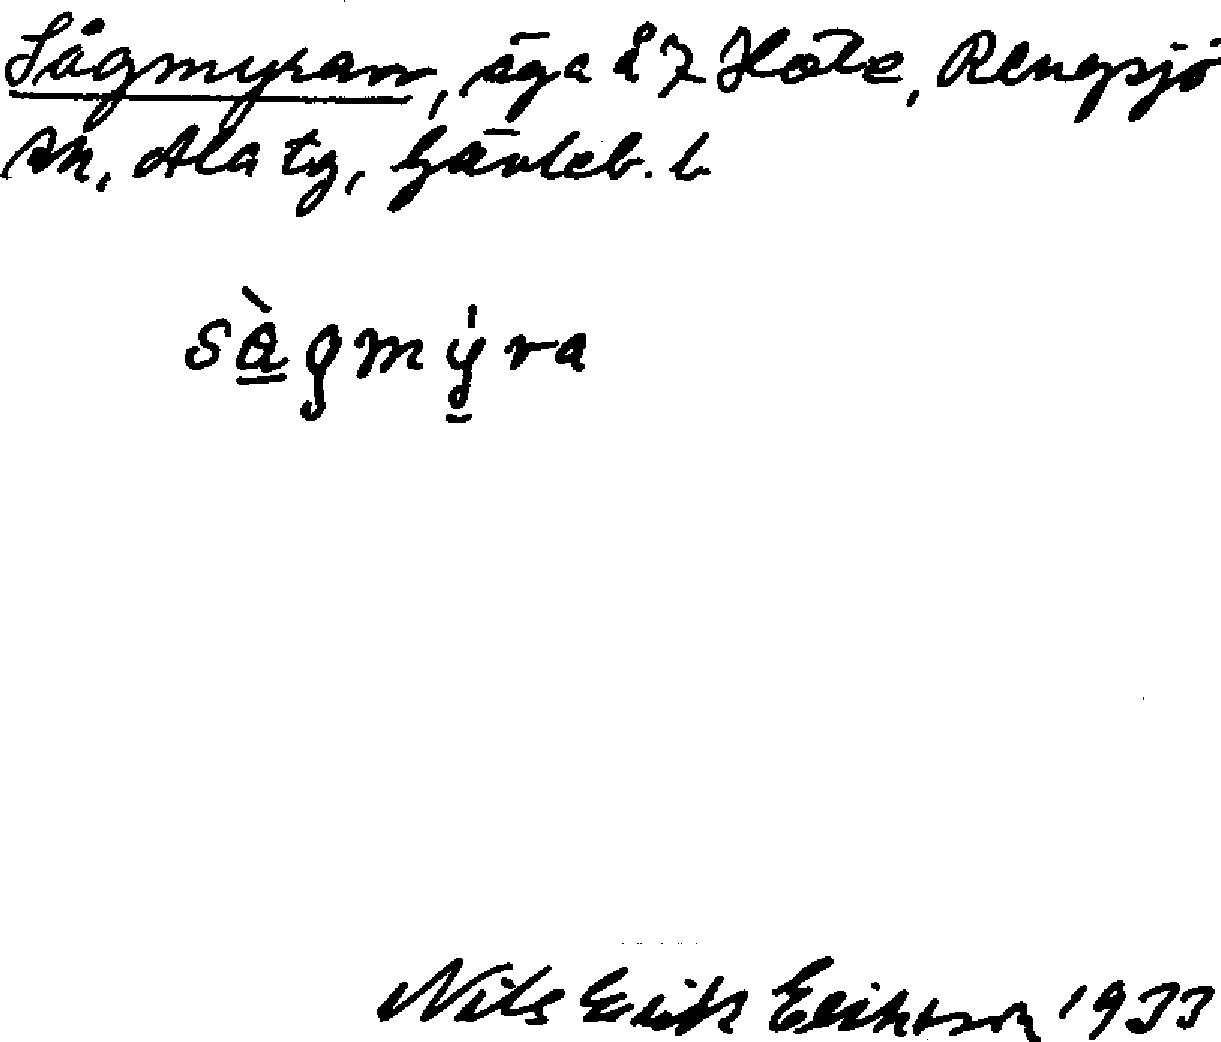 Sågmyran, äga å 7 Höle, Rengsjö
sn, Ala tg, Gävleb. l.
sågmyra
Nils Erik Eriksson 1933